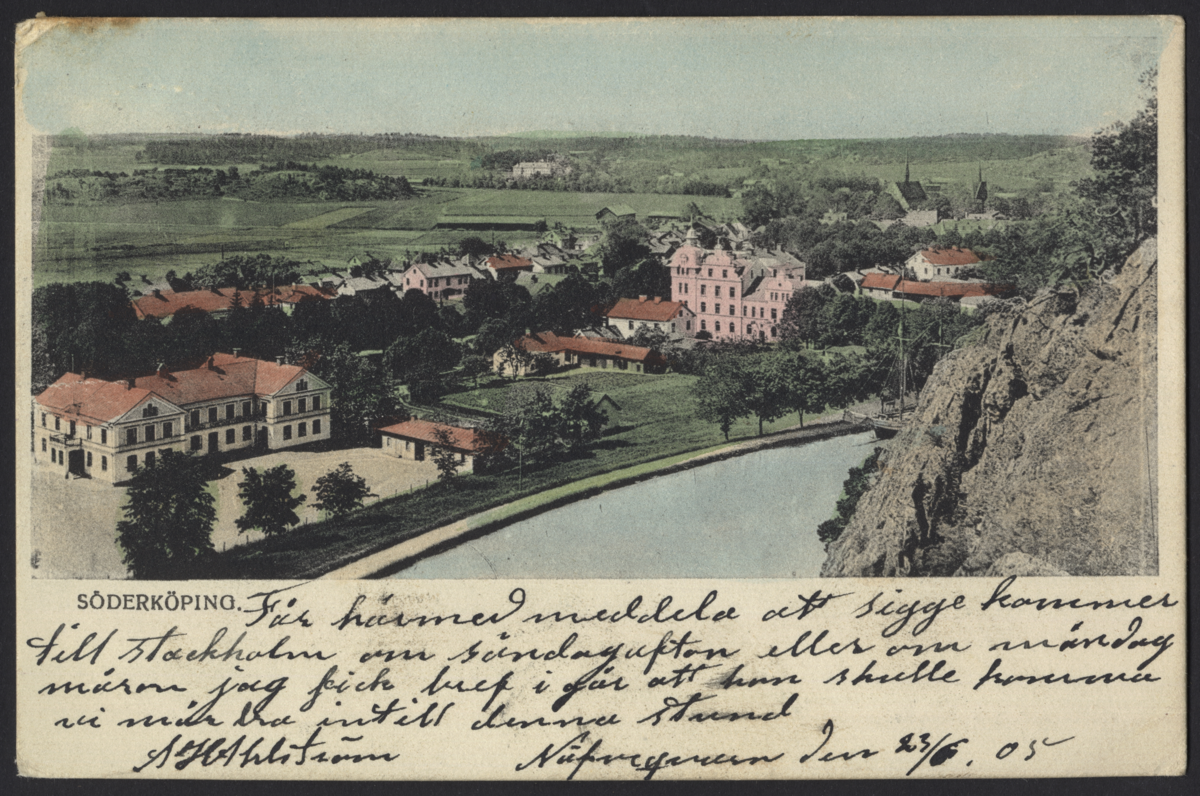 SÖDERKÖPING. Får härmed meddela att sigge kommer
till stockholm om söndagafton eller om måndag
måron jag fick bref i går att han skulle komma
vi mår bra intill denna stund
A H Ahlström den 23/6. 05